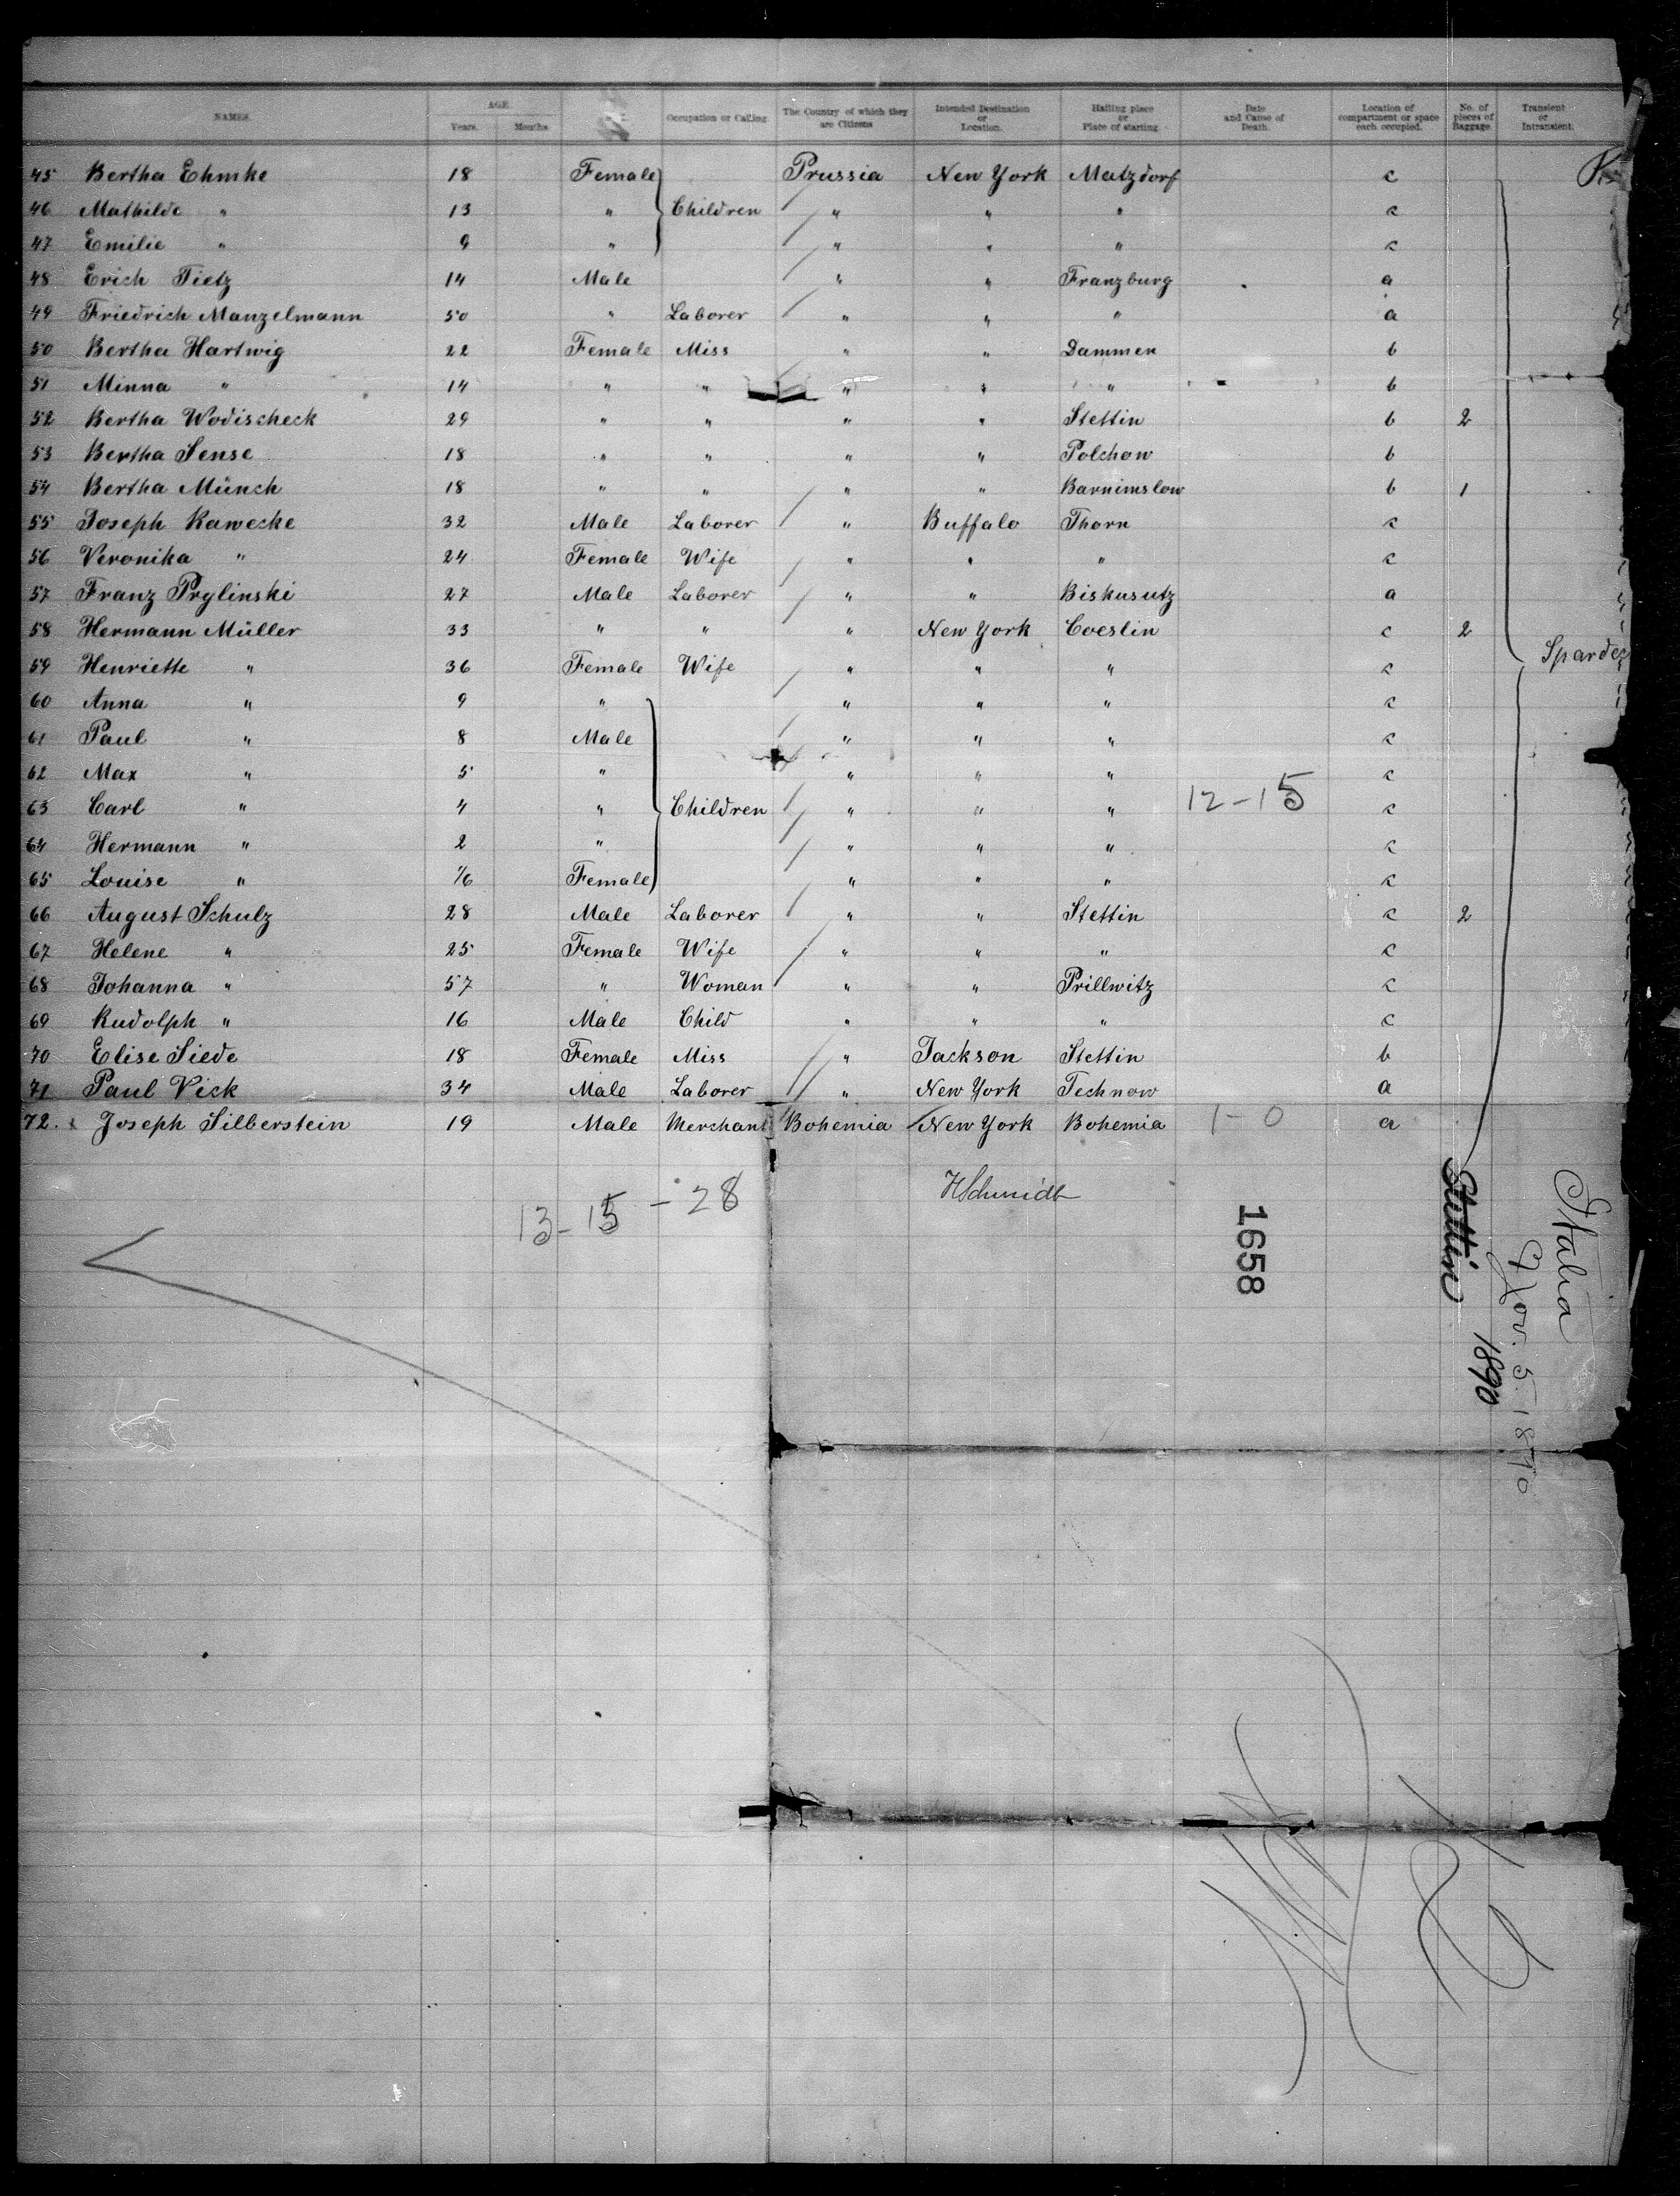 NAMES. AGE. Years. Months. Occupation or Calling The Country of which they are Citizens Intended Destination or Location. Hailing place or Place of starting Date and Cause of Death. Location of compartment or space each occupied. No. of pieces of Baggage Transient or Intransient.
45 Bertha Ehmke 18 Female Prussia New York Matzdorf c
46 Mathilde " 13 " Children " " " c
47 Emilie " 9 " " " " c
48 Erich Tietz 14 Male " " Franzburg a
49 Friedrich Manzelmann 50 " Laborer " " " a
50 Bertha Hartwig 22 Female Miss " " Dammen b
51 Minna " 14 " " " " " b
52 Bertha Wodischeck 29 " " " " Stettin b 2
53 Bertha Sense 18 " " " " Polchow b
54 Bertha Münch 18 " " " " Barnimslow b 1
55 Joseph Kawecke 32 Male Laborer " Buffalo Thorn c
56 Veronika " 24 Female Wife " " " c
57 Franz Prylinski 27 Male Laborer " " Biskusutz a
58 Hermann Müller 33 " " " New York Coeslin c 2
59 Henriette " 36 Female Wife " " " c
Spardeck
60 Anna " 9 " " " " c
61 Paul " 8 Male " " " c
62 Max " 5 " " " " c
63 Carl " 4 " Children " " " 12-15 c
64 Hermann " 2 " " " " c
65 Louise " 1/6 Female " " " c
66 August Schulz 28 Male Laborer " " Stettin c 2
67 Helene " 25 Female Wife " " " c
68 Johanna " 57 " Woman " " Prillwitz c
69 Rudolph " 16 Male Child " " " c
70 Elise Siede 18 Female Miss " Jackson Stettin b
71 Paul Vick 34 Male Laborer " New York Technow a
72. Joseph Silberstein 19 Male Merchant Bohemia New York Bohemia 1-0 a
13-15-28
HSchmidt
1658
Stettin 1890
Italia
Nov. 5. 1890